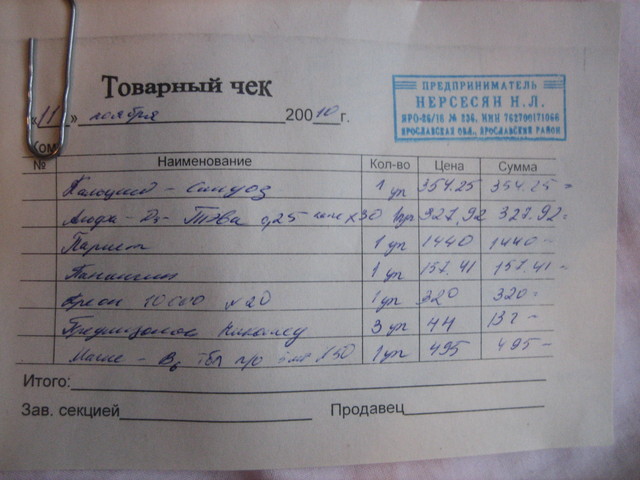 Товарный чек
ПРЕДПРИНИМАТЕЛЬ
НЕРСЕСЯН Н.Л.
ЯРО-ВБ/18 № 236, ИНН 762700171066
ЯРОСЛАВСКАЯ ОБЛ., ЯРОСЛАВСКИЙ РАЙОН
«11» ноября 200 10 г.
Ком
№ Наименование Кол-во Цена Сумма
Сандоз 1 уп 354.25 354.25 =
Альфа - Д3 - Тева 0,25 х30 1уп 327,92 327.92=
Париет 1 уп 1440 1440-
Панангин 1 уп 157.41 157.41-
Креон 10 000 N20 1уп 320 320-
Преднизолон Никомед 3 уп 44 132-
Магне - В6 тбл п/о N50 1уп 495 495-
Итого:
Зав. секцией Продавец